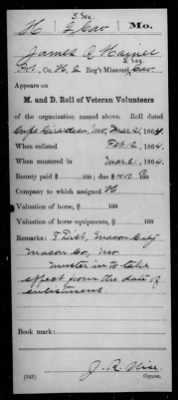 S.M.
H 2 Cav Mo.
James A. Haines
Pvt., Co. H, 2 Reg't Missouri S.M. Cav.
Appears on
M. and D. Roll of Veteran Volunteers
of the organization named above. Roll dated
Cape Girardeau, Mo, Mar 2, 1864.
When enlisted Feb 2, 1864.
When mustered in Mar 2, 1864.
Bounty paid $ 100; due $ 100
Company to which assigned H
Valuation of horse, $ 100
Valuation of horse equipments, $ 100
Remarks: Dist, Macon City
Macon Co, Mo
Muster in to take
effect from the date of
enlistment.
Book mark:
(341) Copyist.